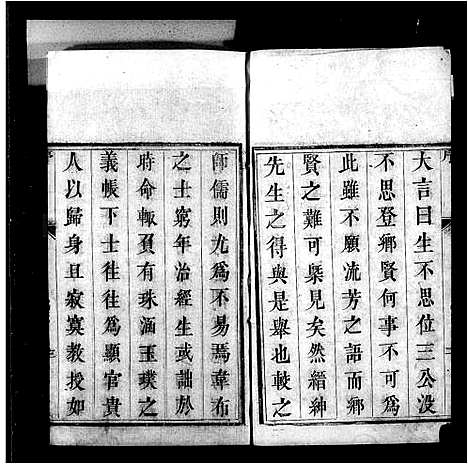 大言曰生不思位三公没
不思登鄉賢何事不可爲
此雖不願流芳之語而鄉
賢之難可槩見矣然縉紳
先生之得與是舉也較之
師儒則尤爲不易焉韋布
之士窮年治經生或詘於
時命輙負有珠涵玉璞之
義帳下士往往爲顯官貴
人以歸身且寂寞教授如